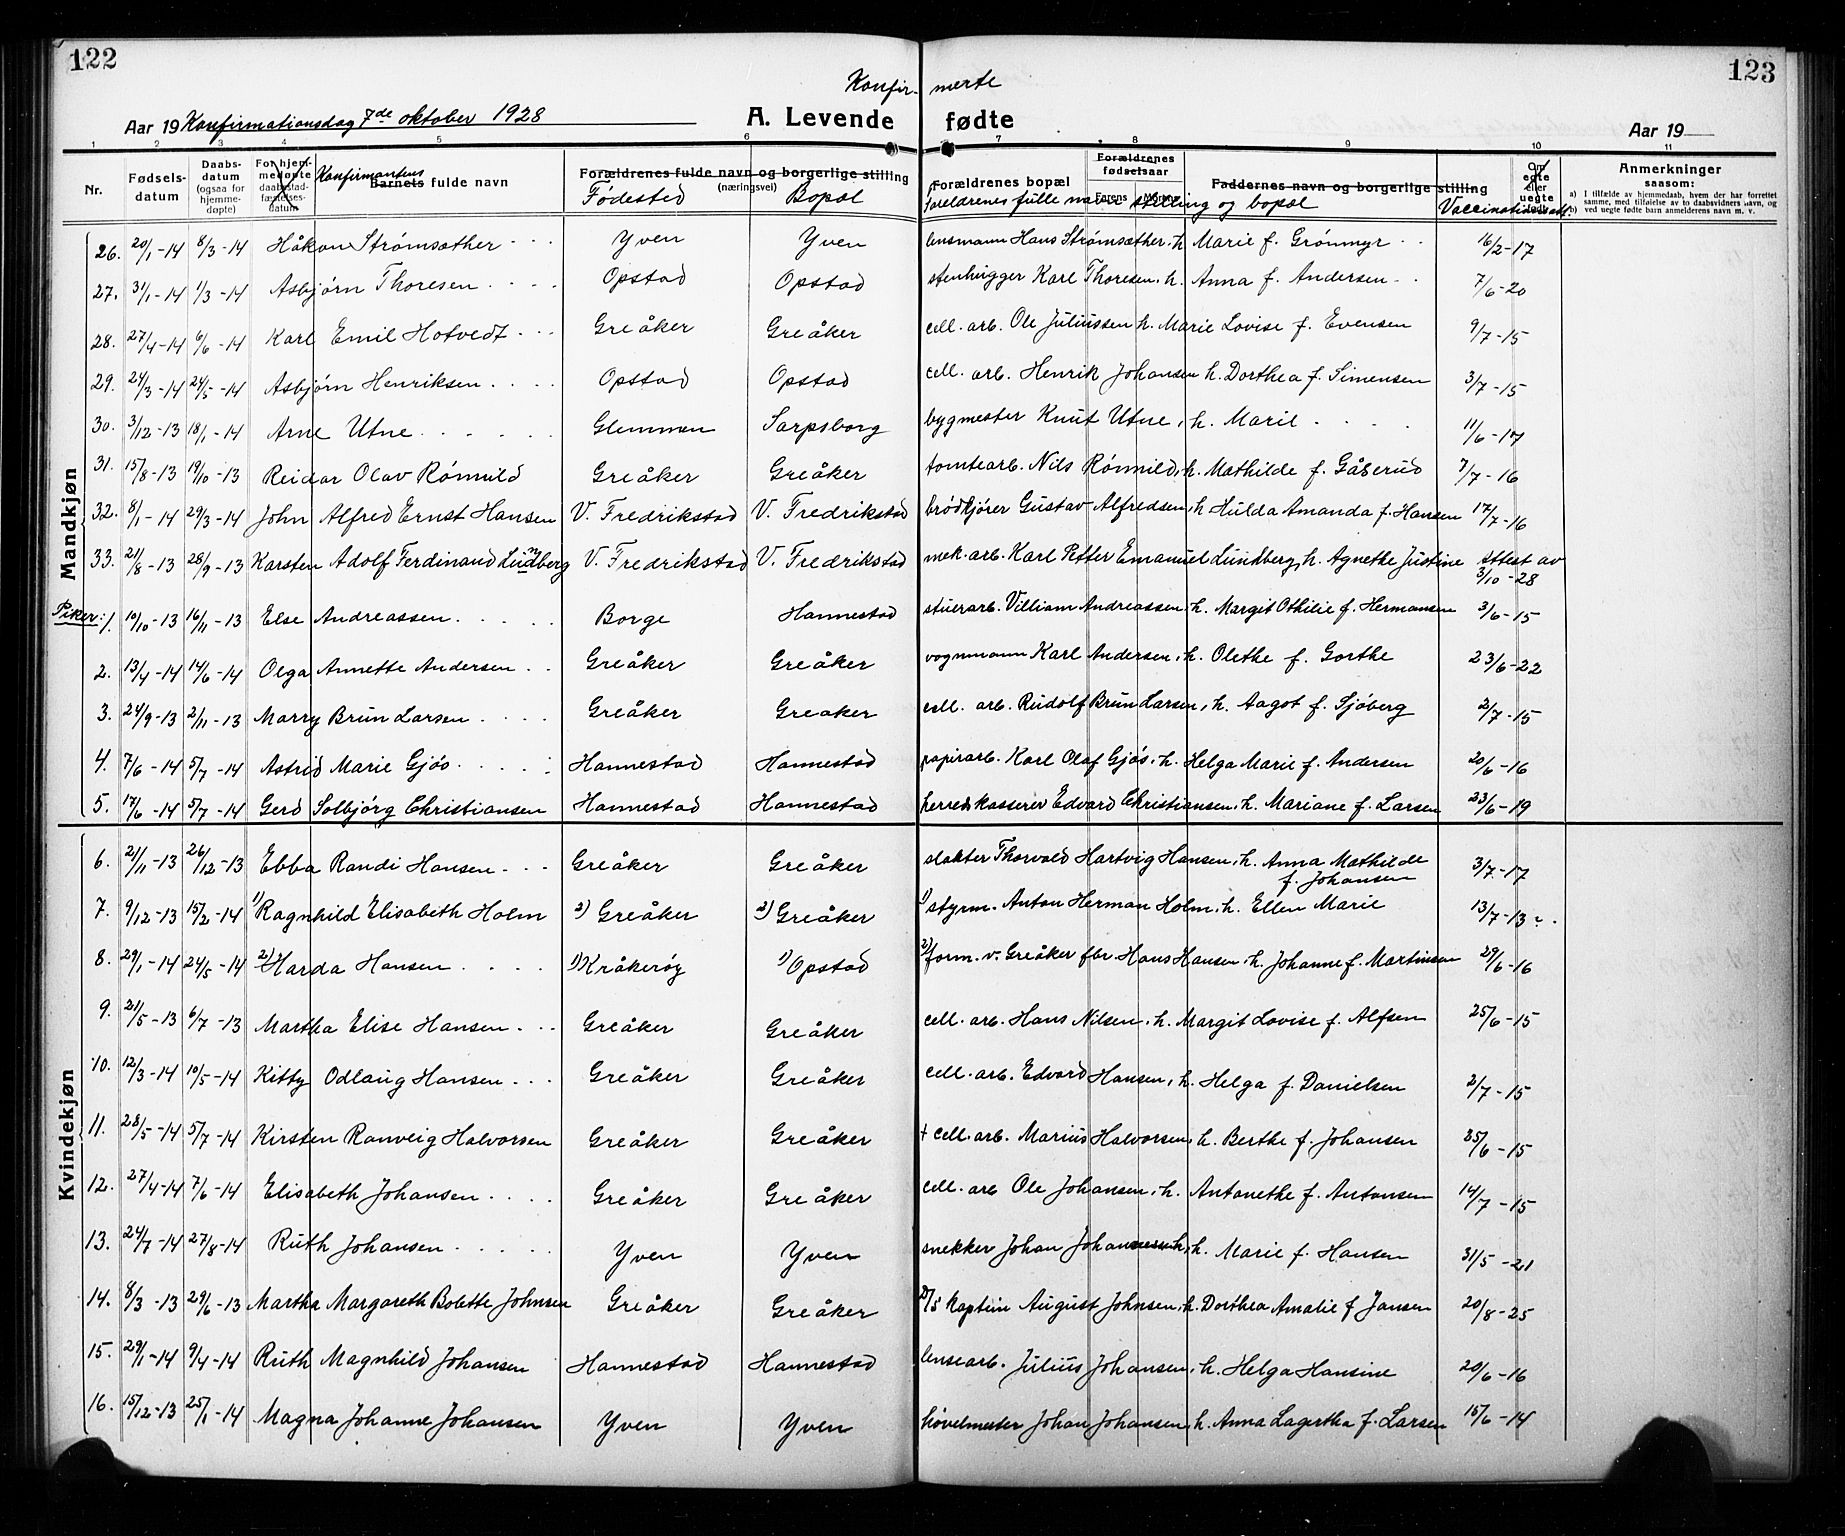 122
123
Konfir- merte
Aar 19 Konfirmationsdag 7de oktober 1928 A. Levende fødte Aar 19
1 2 3 4 5 6 7 8 9 10 11
Nr. Fødsels-datum Daabs-datum (ogsaa for hjemme-døpte) For hjem-medøpte daabsstad-fæstelses-datum Konfirmantens Barnets fulde navn Forældrenes fulde navn og borgerlige stilling (næringsvei) Fødested Bopæl Forældrenes bopæl Forældrenes fødselsaar Farens Morens Faddernes navn og borgerlige stilling foreldrenes fulle navn, stilling og bopæl Vaccinationsatt. Om egte eller uegte født Anmerkninger saasom:
a) I tilfælde av hjemmedaab, hvem der har forrettet samme, med tilføielse av to daabsvidners navn, og
b) ved uegte fødte barn anmelderens navn m. v.
Mandkjøn
26. 20/1-14 8/3-14 Håkon Strømsæther Yven Yven lensmann Hans Strømsæther, h. Marie f. Grönmyr 16/2-17
27. 31/1-14 1/3-14 Asbjørn Thoresen Opstad Opstad stenhugger Karl Thoresen, h. Anna f. Andersen 7/6-20
28. 27/4-14 6/6-14 Karl Emil Hotvedt Greåker Greåker cell. arb. Ole Juliussen h. Marie Lovise f. Evensen 9/7-15
29. 24/3-14 24/5-14 Asbjörn Henriksen Opstad Opstad cell. arb. Henrik Johansen h. Dorthea f. Simensen 3/7-15
30. 3/12-13 18/1-14 Arne Utne Glemmen Sarpsborg bygmester Knut Utne, h. Marie 11/6-17
31. 15/8-13 19/10-13 Reidar Olav Römuld Greåker Greåker tomtearb. Nils Römuld, h. Mathilde f. Gåserud 7/7-16
32. 8/1-14 29/3-14 John Alfred Ernst Hansen V. Fredrikstad V. Fredrikstad brödkjörer Gustav Alfredsen, h. Hulda Amanda f. Hansen 17/7-16
33. 21/8-13 28/9-13 Karsten Adolf Ferdinand Lundberg V. Fredrikstad V. Fredrikstad mek. arb. Karl Petter Emanuel Lundberg, h. Agnethe Justine attest av 3/10-28
Piker: 1. 10/10-13 16/11-13 Else Andreassen Borge Hannestad stuerarb. Villiam Andreassen, h. Margit Othilie f. Hermansen 3/6-15
2. 13/4-14 14/6-14 Olga Annette Andersen Greåker Greåker vognmann Karl Andersen, h. Olethe f. Gorthe 23/6-22
3. 24/9-13 2/11-13 Marry Brun Larsen Greåker Greaker cell. arb. Rudolf Brun Larsen, h. Aagot f. Sjöberg 2/7-15
4. 7/6-14 5/7-14 Astrid Marie Gjös Hannestad Hannestad papirarb. Karl Olaf Gjös, h. Helga Marie f. Andersen 20/6-16
5. 17/6-14 5/7-14 Gerd Solbjörg Christiansen Hannestad Hannestad herredskasserer Edvard Christiansen, h. Mariane f. Larsen 23/6-19
Kvindekjøn
6. 21/11-13 26/12-13 Ebba Randi Hansen Greåker Greåker slakter Thorvald Hartvig Hansen, h. Anna Mathilde f. Johansen 3/7-17
7. 9/12-13 15/2-14 1) Ragnhild Elisabeth Holm 2) Greåker 2) Greåker 1) styrm. Anton Herman Holm, h. Ellen Marie 13/7-13 ?.
8. 29/1-14 24/5-14 2) Harda Hansen 1) Kråkeröy 1) Opstad 2) form. v. Greåker fbr Hans Hansen, h. Johanne f. Martinsen 29/6-16
9. 21/5-13 6/7-13 Martha Elise Hansen Greåker Greåker cell. arb. Hans Nilsen, h. Margit Lovise f. Alfsen 25/6-15
10. 12/3-14 10/5-14 Kitty Odlaug Hansen Greåker Greåker cell. arb. Edvard Hansen, h. Helga f. Danielsen 2/7-15
11. 28/5-14 5/7-14 Kirsten Ranveig Halvorsen Greåker Greåker + cell. arb. Marius Halvorsen, h. Berthe f. Johansen 25/6-15
12. 27/4-14 7/6-14 Elisabeth Johansen Greåker Greåker cell. arb Ole Johansen, h. Antonethe f. Antonsen 14/7-15
13. 24/7-14 27/8-14 Ruth Johansen Yven Yven snekker Johan Johannessen, h. Marie f. Hansen 31/5-21
14. 8/3-13 29/6-13 Martha Margareth Bolette Johnsen Greåker Greåker D/S kaptein August Johnsen, h. Dorthea Amalie f Jansen 20/8-25
15. 29/1-14 9/4-14 Ruth Magnhild Johansen Hannestad Hannestad lensearb. Julius Johansen, h. Helga Hansine 20/6-16
16. 15/12-13 25/1-14 Magna Johanne Johansen Yven Yven hövelmester Johan Johansen, h. Anna Lagertha f. Larsen 15/6-14